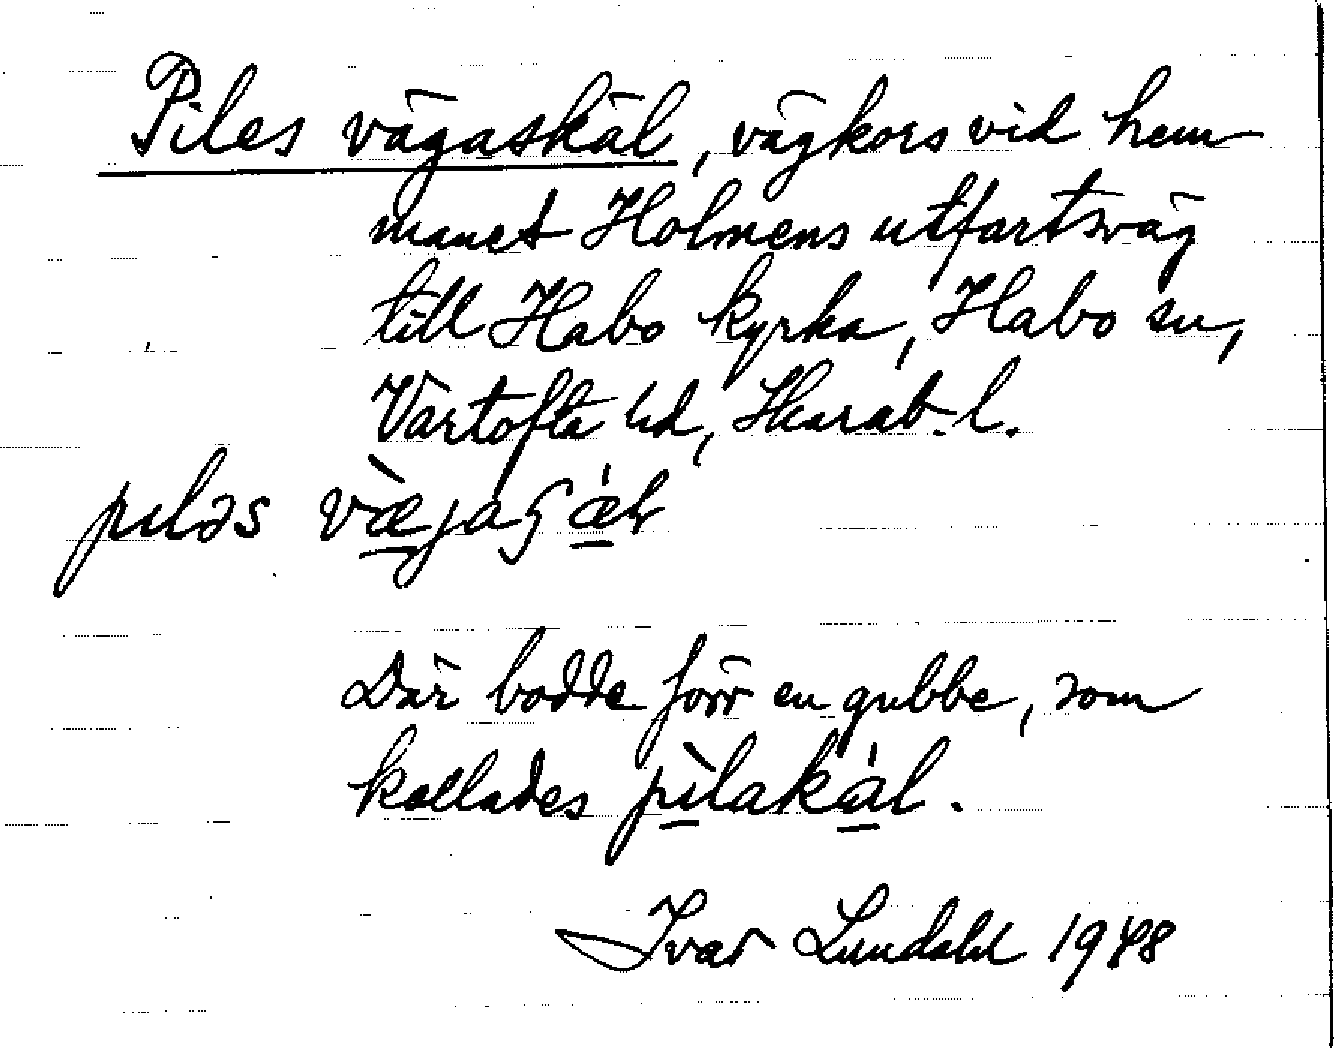 Piles vägaskäl, vägkors vid hem
manet Holmens utfartsväg
till Habo kyrka, Habo sn,
Vartofta hd, Skarab. l.
piləs væ̀jaʂǽl
Där bodde förr en gubbe, som
kallades pìlakál.
Ivar Lundahl 1948